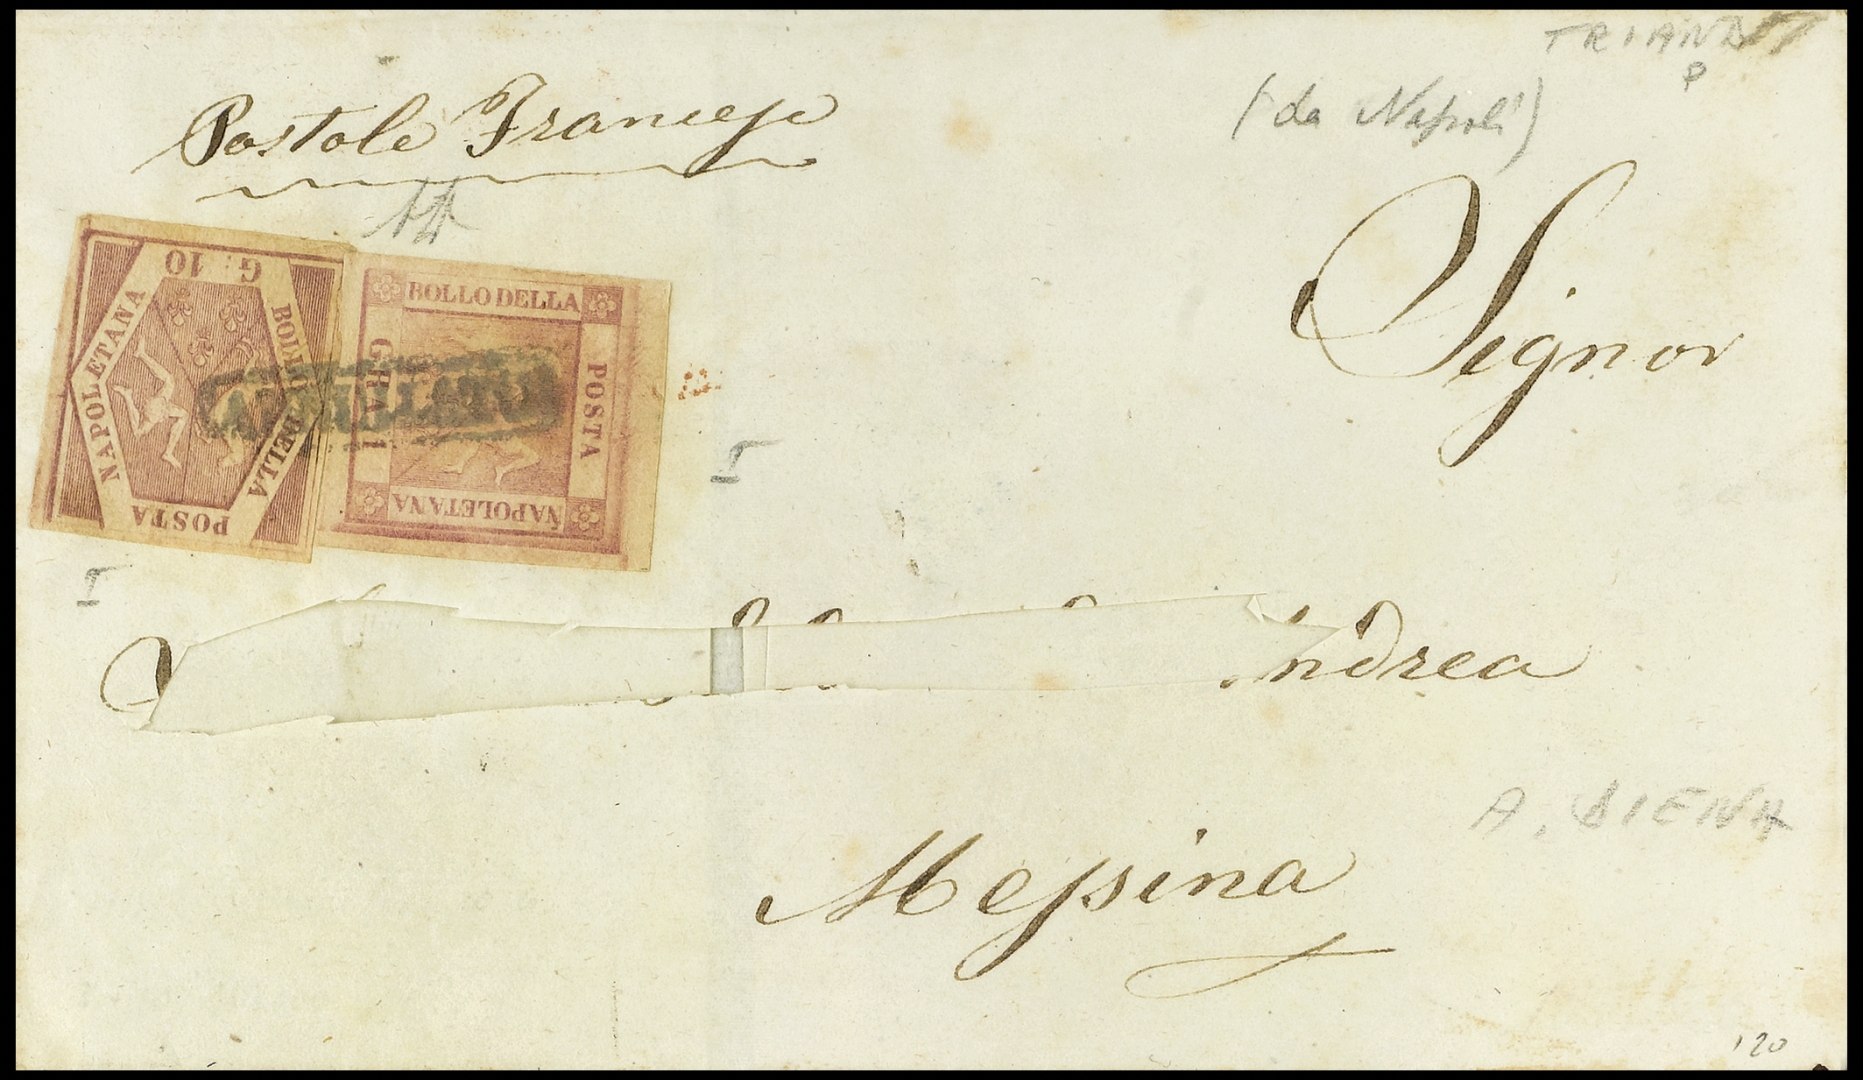 TRIANI
P
(da Napoli)
Postale Francese
G. 10
BOLLO DELLA
POSTA
NAPOLETANA
BOLLO DELLA
POSTA
NAPOLETANA
GRA 1
ANNULLATO
Signor
I
I
Andrea
A. DIENA
Messina
120